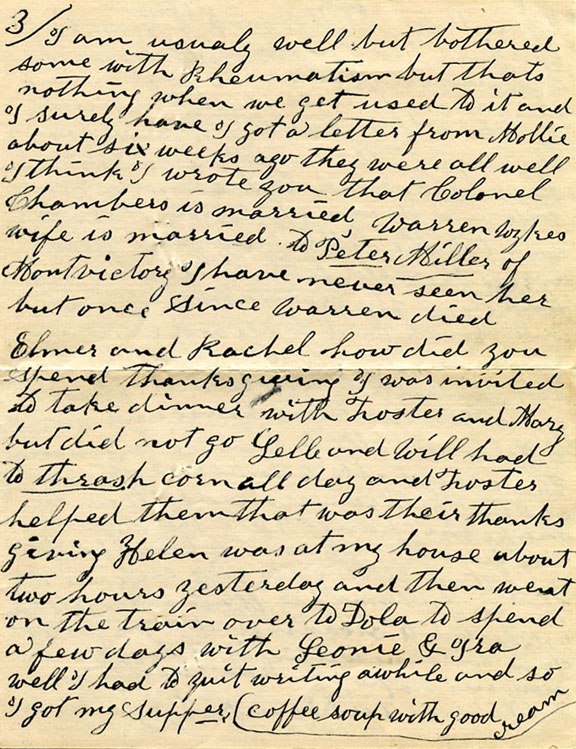 3/ I am usualy well but bothered
some with Rheumatism but thats
nothing when we get used to it and
I surely have I got a letter from Mollie
about six weeks ago they were all well
I think I wrote you that Colonel
Chambers is married, Warren Wykes
wife is married to Peter Miller of
Montvictory I have never seen her
but once Since Warren died
Elmer and Rachel how did you
spend thanksgiving I was invited
to take dinner with Foster and Mary
but did not go Lelle and Will had
to thrash corn all day and Foster
helped them that was their thanks
giving Helen was at my house about
two hours yesterday and then went
on the train over to Dola to spend
a few days with Leonie & Ira
well I had to quit writing awhile and so
I got my supper (coffee soup with good cream